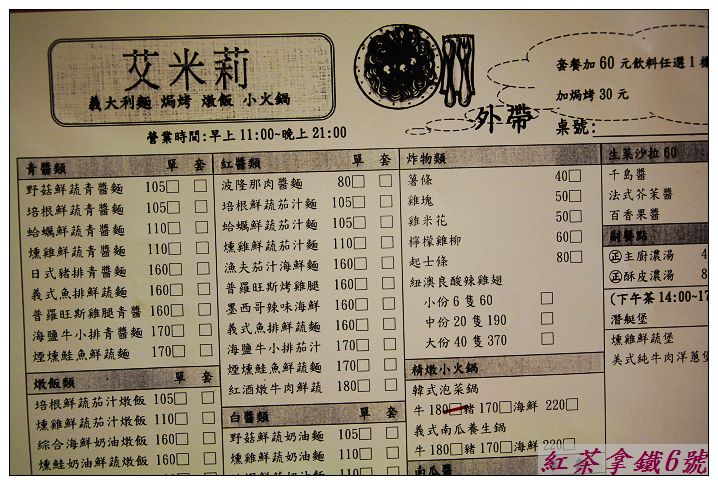 艾米莉
義大利麵 焗烤 燉飯 小火鍋
營業時間:早上 11:00~晚上 21:00
套餐加 60 元飲料任選 1
加焗烤 30 元
外帶
桌號:
青醬類 單 套
野菇鮮蔬青醬麵 105
培根鮮蔬青醬麵 105
蛤蠣鮮蔬青醬麵 110
燻雞鮮蔬青醬麵 110
日式豬排青醬麵 160
義式魚排鮮蔬麵 160
普羅旺斯雞腿青醬 160
海鹽牛小排青醬麵 170
煙燻鮭魚鮮蔬麵 170
燉飯類 單 套
培根鮮蔬茄汁燉飯 105
燻雞鮮蔬茄汁燉飯 110
綜合海鮮奶油燉飯 160
燻鮭鮮蔬奶油燉飯 160
紅醬類 單 套
波隆那肉醬麵 80
培根鮮蔬茄汁麵 105
蛤蠣鮮蔬茄汁麵 105
燻雞鮮蔬茄汁麵 110
漁夫茄汁海鮮麵 160
普羅旺斯烤雞腿 160
墨西哥辣味海鮮 160
義式魚排鮮蔬麵 160
海鹽牛小排茄汁 170
煙燻鮭魚鮮蔬麵 170
紅酒燉牛肉鮮蔬 180
白醬類 單 套
野菇鮮蔬奶油麵 105
燻雞鮮蔬奶油麵 110
鮮蔬奶油麵 110
炸物類
薯條 40
雞塊 50
雞米花 50
檸檬雞柳 60
起士條 80
紐澳良酸辣雞翅
小份 6 隻 60
中份 20 隻 190
大份 40 隻 370
精燉小火鍋
韓式泡菜鍋
牛 180 豬 170 海鮮 220
義式南瓜養生鍋
牛 180 豬 170 海鮮 220
南瓜醬
生菜沙拉 60
千島醬
法式芥茉醬
百香果醬
附餐點
正主廚濃湯 4
正酥皮濃湯 8
(下午茶 14:00~17
潛艇堡
燻雞鮮蔬堡
美式純牛肉洋蔥堡
紅茶拿鐵6號